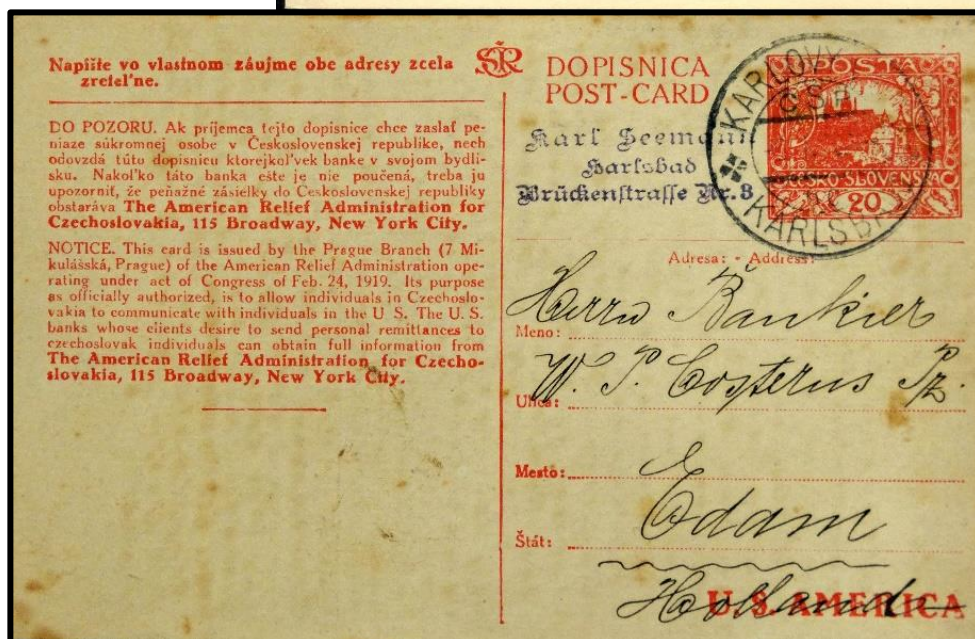 Napíšte vo vlastnom záujme obe adresy zcela
zreteľne.
DO POZORU. Ak príjemca tejto dopisnice chce zaslať pe-
niaze súkromnej osobe v Československej republike, nech
odovzdá túto dopisnicu ktorejkoľvek banke v svojom bydli-
sku. Nakoľko táto banka ešte je nie poučená, treba ju
upozorniť, že peňažné zásielky do Československej republiky
obstaráva The American Relief Administration for
Czechoslovakia, 115 Broadway, New York City.
NOTICE. This card is issued by the Prague Branch (7 Mi-
kulášská, Prague) of the American Relief Administration ope-
rating under act of Congress of Feb. 24, 1919. Its purpose
as officially authorized, is to allow individuals in Czechoslo-
vakia to communicate with individuals in the U S. The U. S.
banks whose clients desire to send personal remittances to
czechoslovak individuals can obtain full information from
The American Relief Administration for Czecho-
slovakia, 115 Broadway, New York City.
ČSR
DOPISNICA
POST-CARD
Karl Seemann
Karlsbad
Brückenstrasse Nr. 3
POŠTA
ČESKO-SLOVENSKÁ
20
KARLOVY
Č.S.P.
KARLSBAD
Adresa: - Address:
Meno: Herrn Bankier
Ulica: W. P. Costerus Pz.
Mesto:
Štát: Edam
Holland
U. S. AMERICA